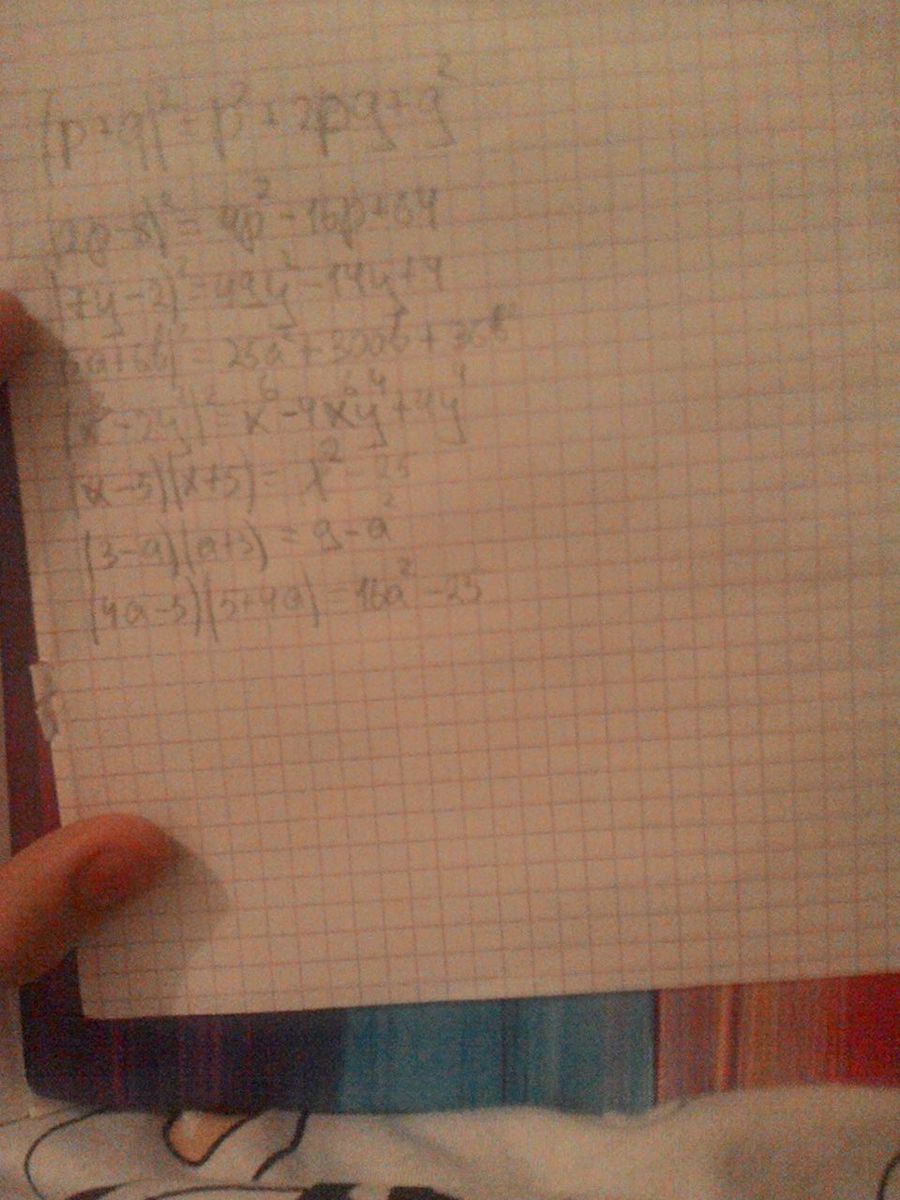 (p+q)² = p²+2pq+q²
(2p-8)² = 4p²-16p+64
(7y-2)² = 49y²-14y+4
= 25a²+300
(x³-2y²)² = x⁶-4x y⁴+4y⁴
(x-5)(x+5) = x²-25
(3-a)(a+3) = 9-a²
(4a-5)(5+4a) = 16a²-25